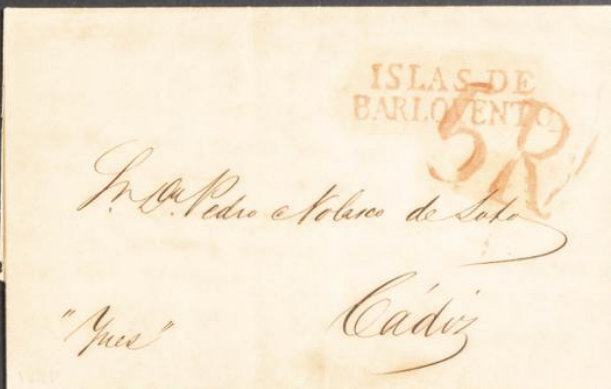 ISLAS DE
BARLOVENTO
5R
Sr. Dn. Pedro Nolasco de Soto
Cádiz
"Ynes"